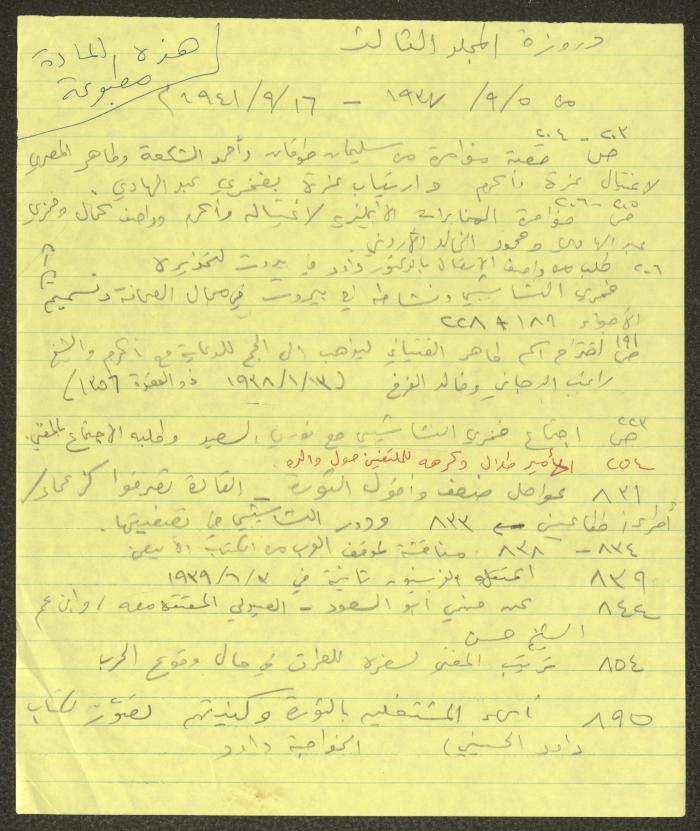 هذه المادة
مطبوعة
دروزة المجلد الثالث
من ٥/٩/١٩٣٧ - ١٦/٩/١٩٤١م
ص ٢٠٣-٢٠٤ قصة مؤامرة من سليمان طوقان وأحمد الشكعة وطاهر المصري
لاغتيال عزة وأكرم وارتياب عزة بفخري عبد الهادي.
ص ٢٠٥-٢٠٦ مؤامرة المخابرات الانجليزية لاغتياله وأكرم وواصف كمال وفخري
عبد الهادي ومحمود الخالد الأردني.
٢٠٦ طلب من واصف الاتصال بالدكتور داود في بيروت لتحذيره
فخري النشاشيبي ونشاطه في بيروت في مجال الصحافة وتسميم
الأجواء ١٨٩ + ٢٢٨
ص ١٩١ اقتراح اسم طاهر الفتياني ليذهب الى الحج للدعاية مع أكرم والشيخ
راغب الدجاني وخالد الفرخ (١٣/١/١٩٣٨ ذو القعدة ١٣٥٦)
ص ٢٢٣ اجتماع فخري النشاشيبي مع نوري السعيد وطلبه الاجتماع بالمفتي.
٢٥٤ الأمير طلال وكرهه للملتفين حول والده
٨٣١ عوامل ضعف وأفول الثورة - القادة تصرفوا كزعماء/
أمراء/ طماعين ← ٨٣٣ ودور النشاشيبي في تصفيتها.
٨٣٤ - ٨٣٨ مناقشة لموقف العرب من الكتاب الأبيض
٨٣٩ اعتقله الفرنسيون ثانية في ٣/٦/١٩٣٩
٨٤٤ عن حسني أبو السعود - المعتقل معه/ وابن عم
الشيخ حسن
٨٥٤ ترتيب المفتي لسفره للعراق في حال وقوع الحرب
٨٩٥ أسماء المشتغلين بالثورة وكنيتهم كتاب
داود الحسيني) الخواجة داود